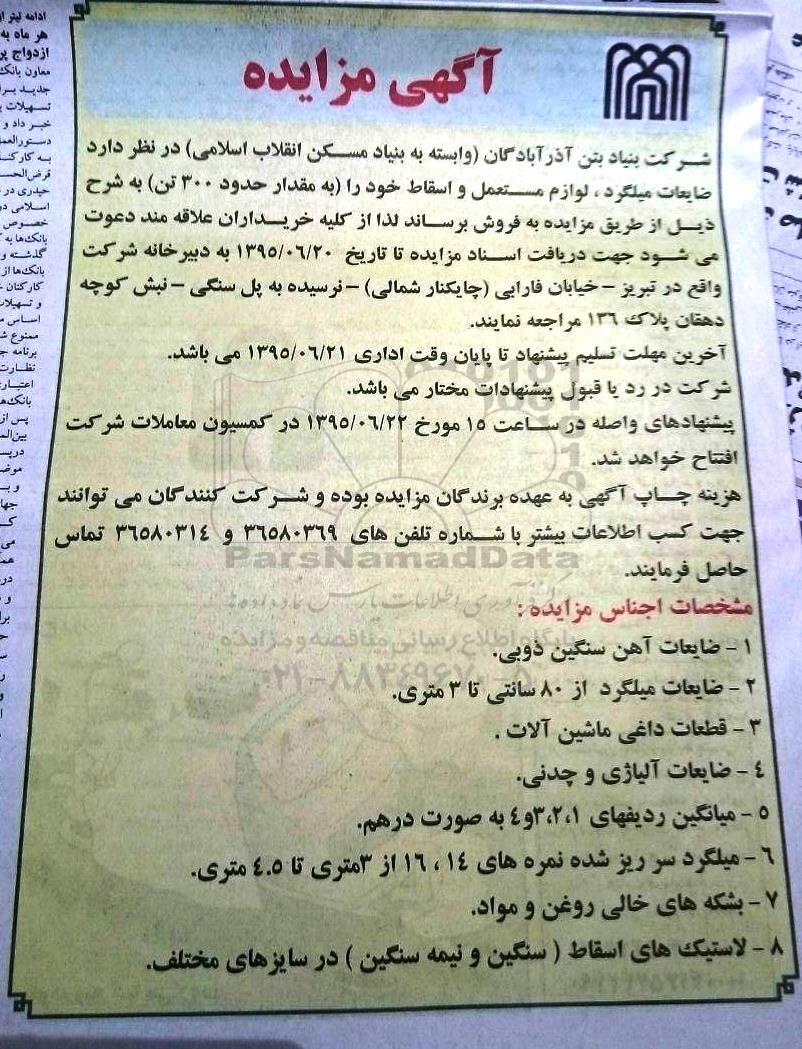 آگهی مزایده
شرکت بنیاد بتن آذرآبادگان (وابسته به بنیاد مسکن انقلاب اسلامی) در نظر دارد
ضایعات میلگرد ، لوازم مستعمل و اسقاط خود را (به مقدار حدود ۳۰۰ تن) به شرح
ذیل از طریق مزایده به فروش برساند لذا از کلیه خریداران علاقه مند دعوت
می شود جهت دریافت اسناد مزایده تا تاریخ ۱۳۹۵/۰۶/۲۰ به دبیرخانه شرکت
واقع در تبریز - خیابان فارابی (چایکنار شمالی) - نرسیده به پل سنگی - نبش کوچه
دهقان پلاک ۱۳۶ مراجعه نمایند.
آخرین مهلت تسلیم پیشنهاد تا پایان وقت اداری ۱۳۹۵/۰۶/۲۱ می باشد.
شرکت در رد یا قبول پیشنهادات مختار می باشد.
پیشنهادهای واصله در ساعت ۱۵ مورخ ۱۳۹۵/۰۶/۲۲ در کمسیون معاملات شرکت
افتتاح خواهد شد.
هزینه چاپ آگهی به عهده برندگان مزایده بوده و شرکت کنندگان می توانند
جهت کسب اطلاعات بیشتر با شماره تلفن های ۳۶۵۸۰۳۶۹ و ۳۶۵۸۰۳۱۴ تماس
حاصل فرمایند.
ParsNamadData
مشخصات اجناس مزایده :
پایگاه اطلاع رسانی مناقصه و مزایده
۱ - ضایعات آهن سنگین ذوبی.
۲ - ضایعات میلگرد از ۸۰ سانتی تا ۳ متری.
۳ - قطعات داغی ماشین آلات .
۴ - ضایعات آلیاژی و چدنی.
۵ - میانگین ردیفهای ۳،۲،۱و۴ به صورت درهم.
۶ - میلگرد سر ریز شده نمره های ۱۴ ، ۱۶ از ۳متری تا ۴.۵ متری.
۷ - بشکه های خالی روغن و مواد.
۸ - لاستیک های اسقاط ( سنگین و نیمه سنگین ) در سایزهای مختلف.